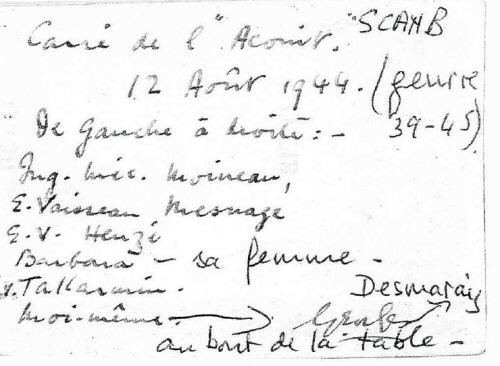 Carré de l'"Aconit". "SCAMB
12 Août 1944. (guerre
De Gauche à droite :- 39-45)
Ing. Méc. Moineau,
E. Vaisseau Mesnage
E.V. Henzé
Barbara - sa femme -
Tallarmin.
Desmarais
Moi-même
au bout de la table -